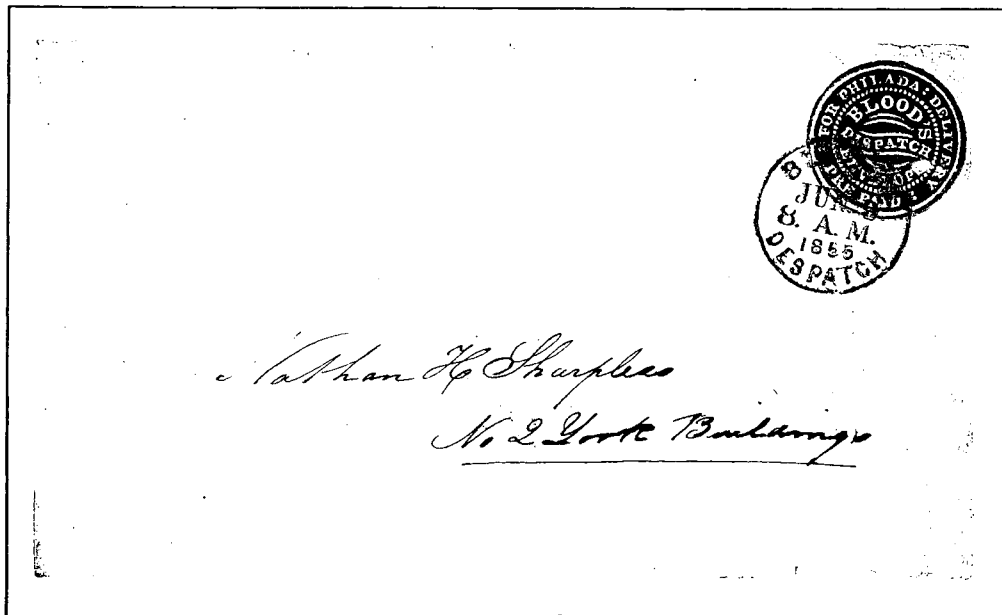 FOR PHILADA: DELIVERY
PRE PAID
BLOOD'S
DISPATCH
JUN
8. A. M.
1855
DESPATCH
Nathan H Sharpless
No 2 York Buildings